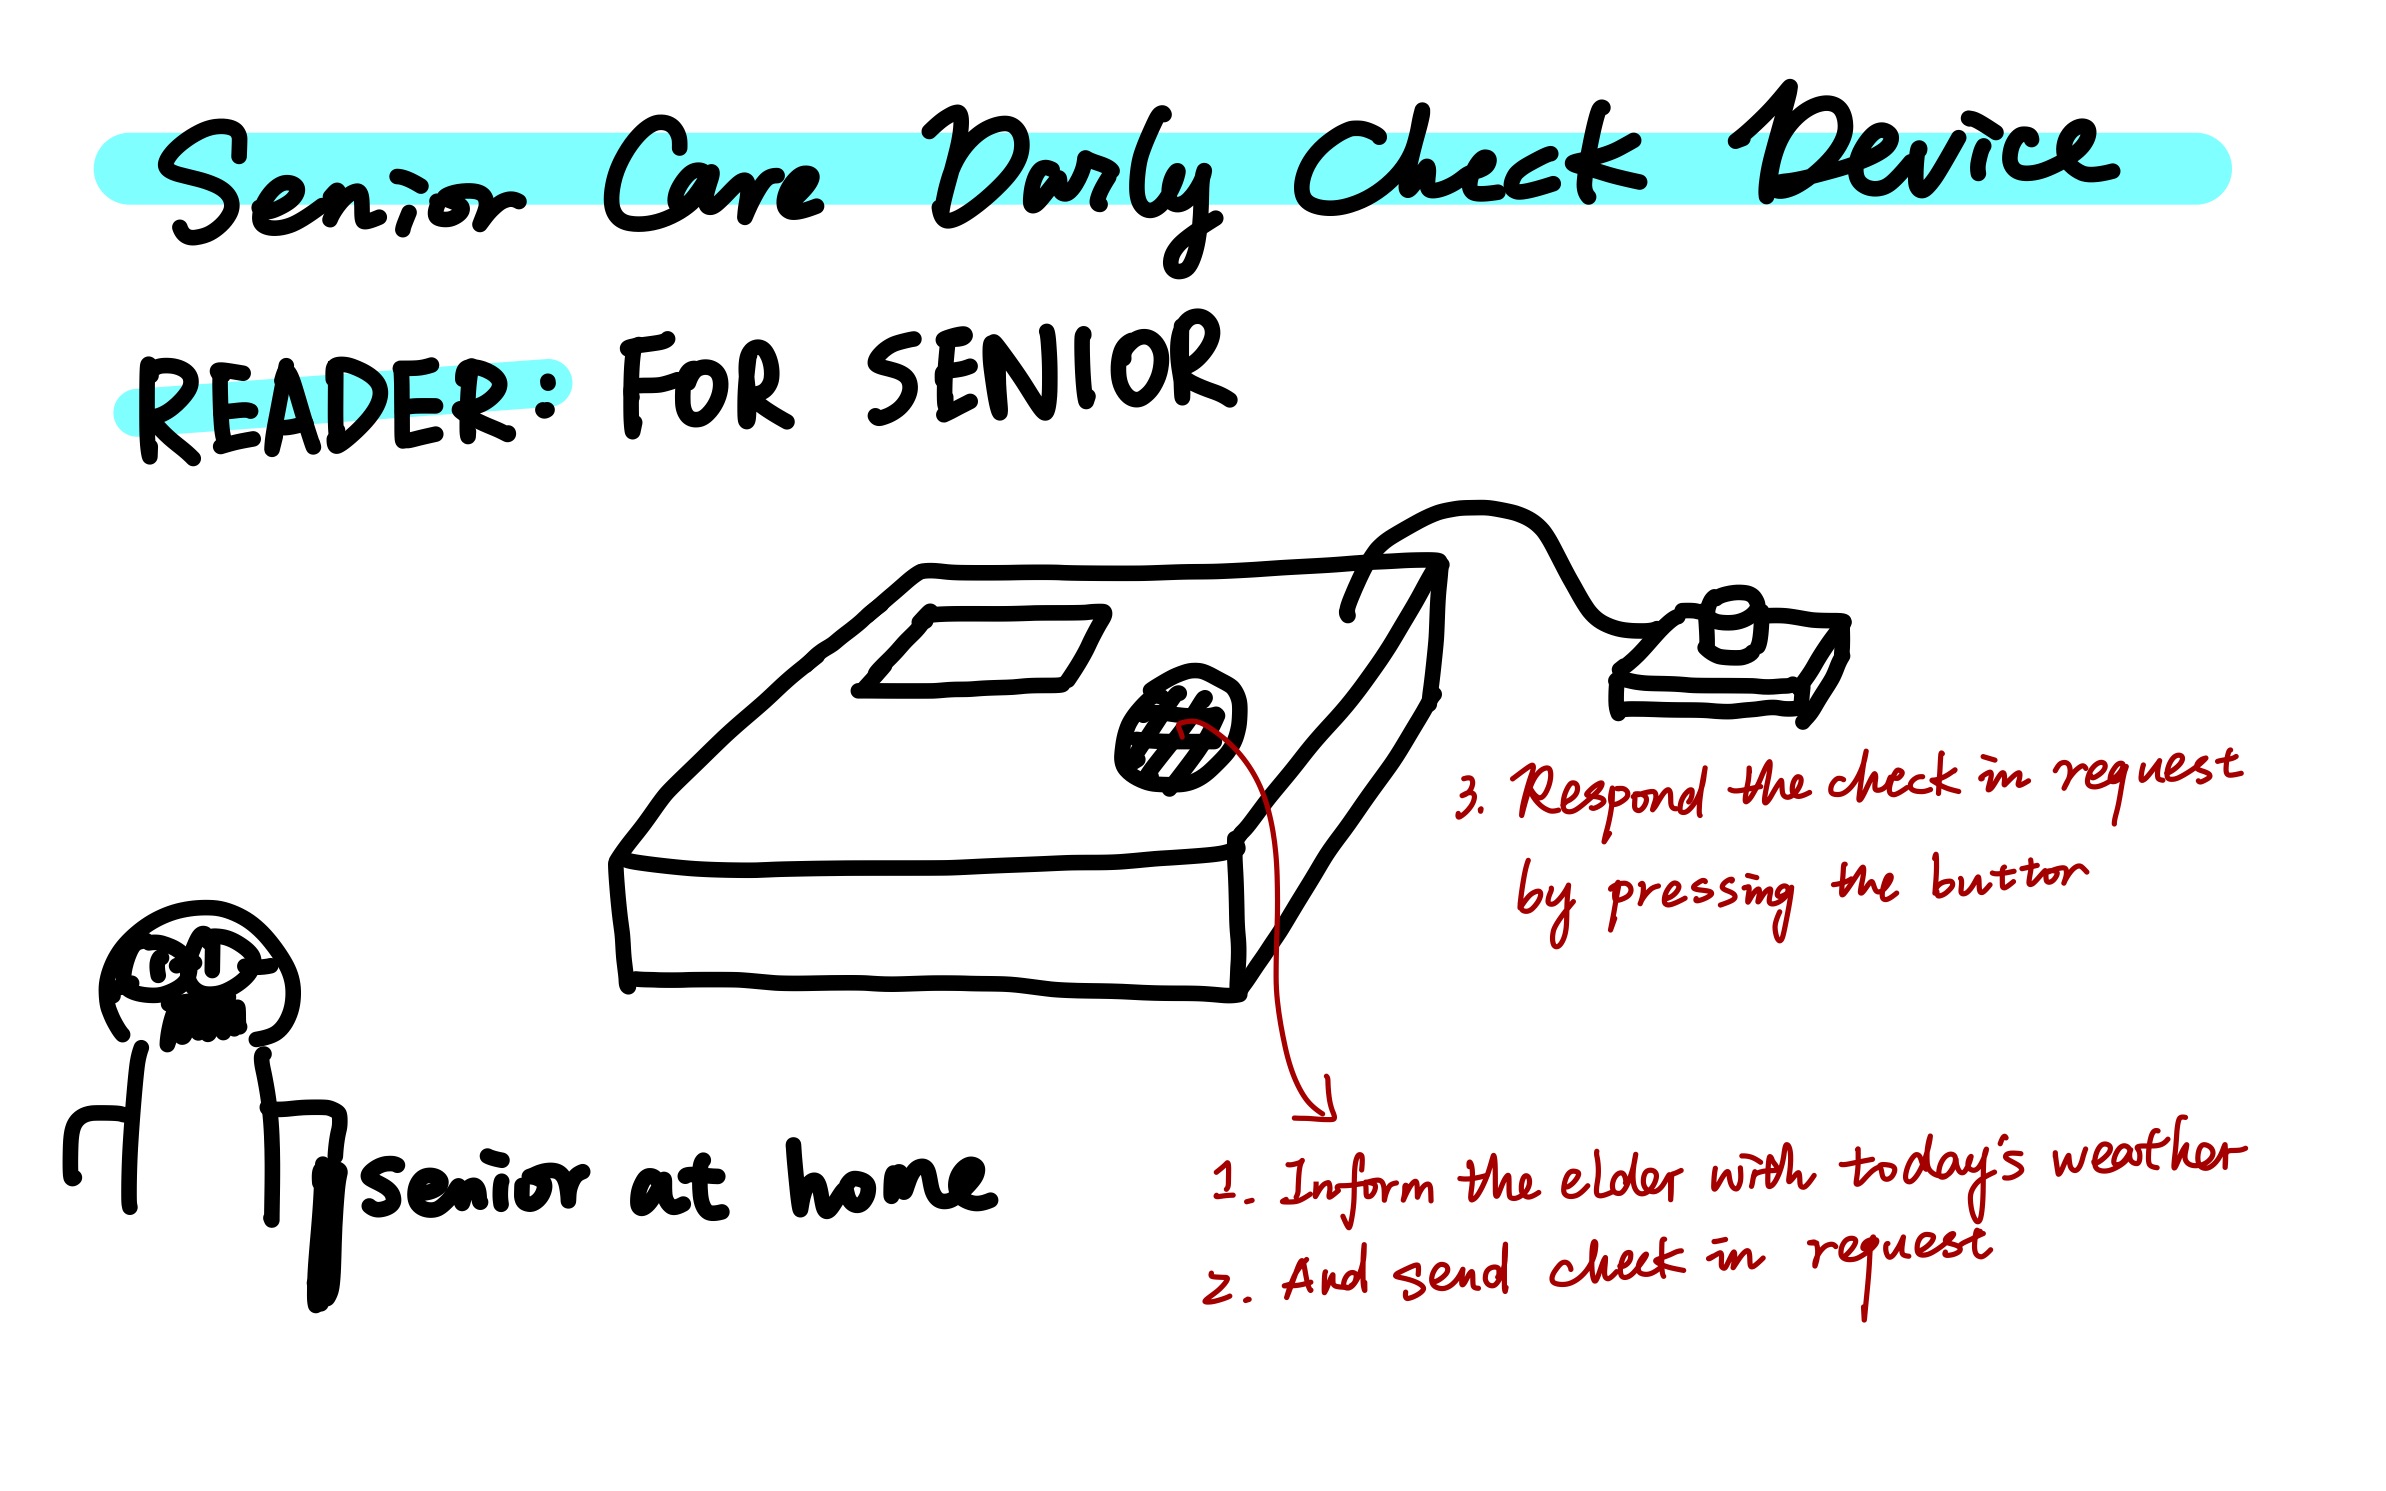 Senior Care Daily Check Device
READER: FOR SENIOR
3. Respond the check in request
by pressing the button
senior at home
1. Inform the elder with today's weather
2. And send check in request